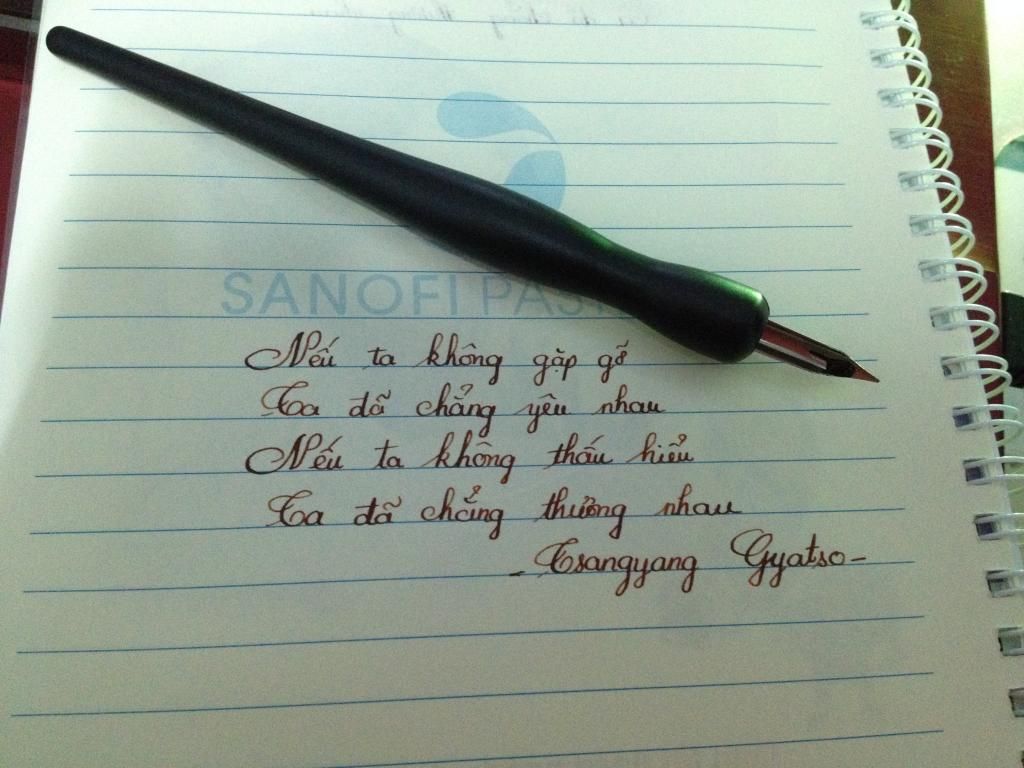 SANOFI PAS
Nếu ta không gặp gỡ
Ta đã chẳng yêu nhau
Nếu ta không thấu hiểu
Ta đã chẳng thương nhau
- Tsangyang Gyatso -